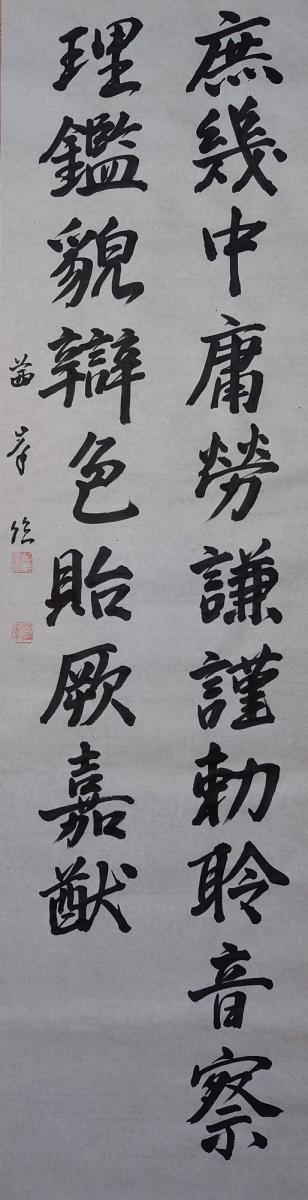 庶幾中庸勞謙謹勅聆音察
理鑑貌辯色貽厥嘉猷
峯